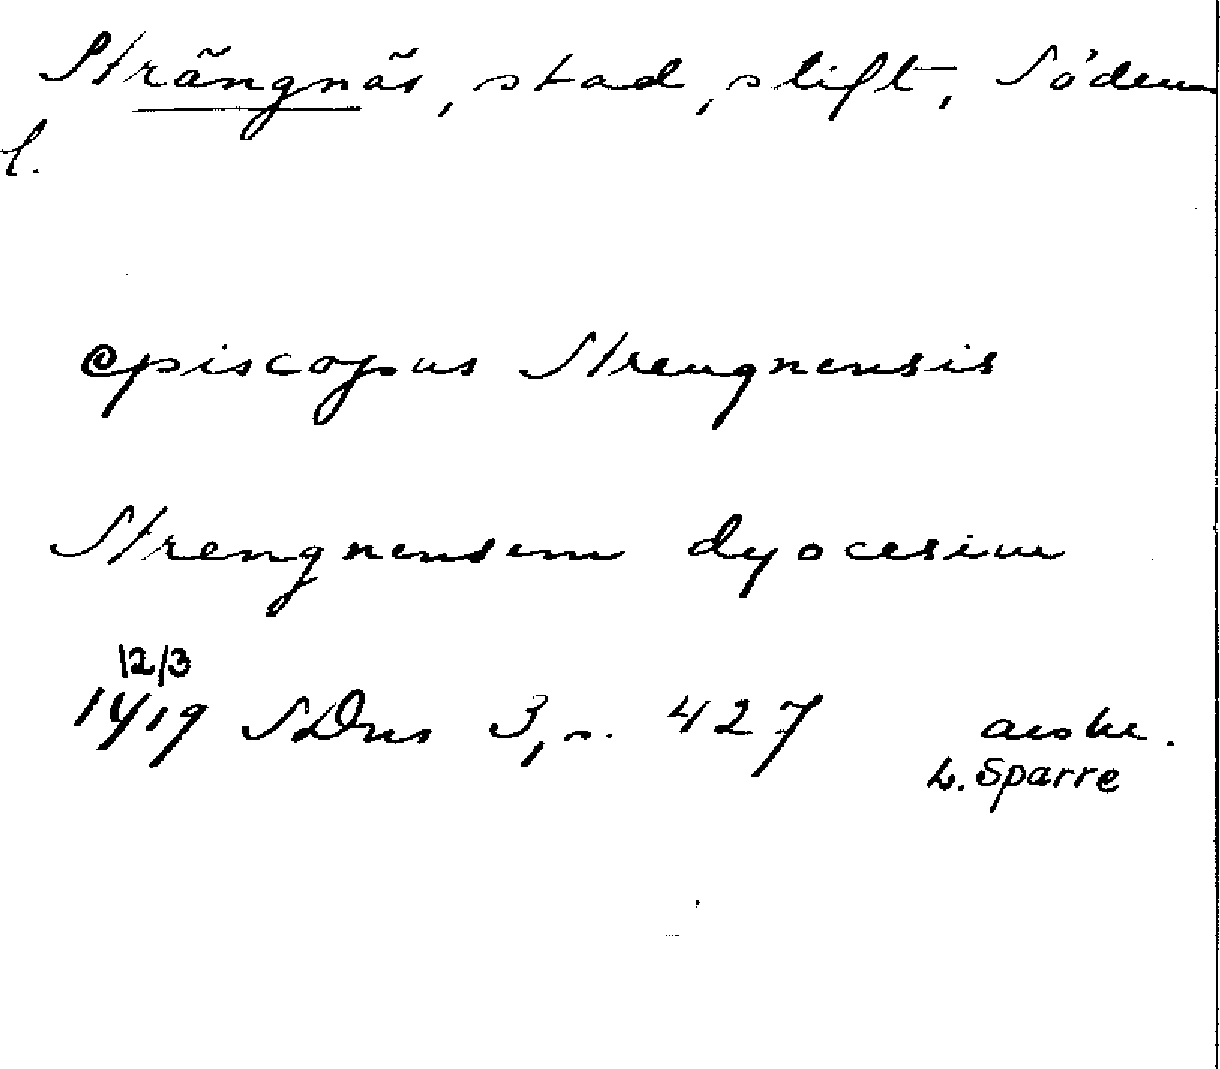 Strängnäs, stad, stift, Söderm
l.
episcopus Strengnensis
Strengnensem dyocesim
12/3
1419 SDns 3, s. 427 avskr.
L. Sparre